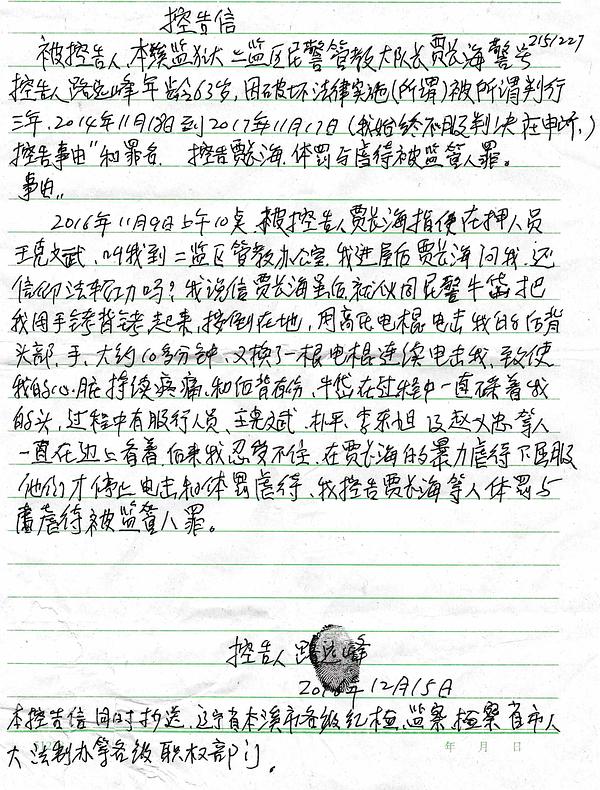 控告信
被控告人,本溪监狱二监区民警管教大队长贾长海警号2151227
控告人路远峰年龄63岁,因破坏法律实施(所谓)被所谓判行
三年.2014年11月18日到2017年11月17日(我始终不服判决在申诉.)
控告事由"和罪名. 控告贾长海.体罚与虐待被监管人罪。
事由..
2016年11月9日上午10点.被控告人贾长海指使在押人员
王克文武.叫我到二监区管教办公室.我进屋后贾长海问我.还
信仰法轮功吗?我说信贾长海呈后就伙同民警牛岱把
我用手铐背铐起来,按倒在地,用高压电棍电击我的后背
头部.手.大约10多分钟.又换了一根电棍连续电击我.致使
我的心脏持续疼痛.和后背有伤.牛岱在过程中一直踩着我
的头,过程中有服行人员.王克文武.朴平.李东旭及赵义忠等人
一直在边上看着.后来我忍受不住.在贾长海的暴力虐待下屈服
他们才停止电击和体罚虐待.我控告贾长海等人体罚与
虐待被监管人罪。
控告人路远峰
12月15日
本控告信同时抄送.辽宁省本溪市各级纪检.监察.检察省市人
大法制办等各级职权部门.
年 月 日